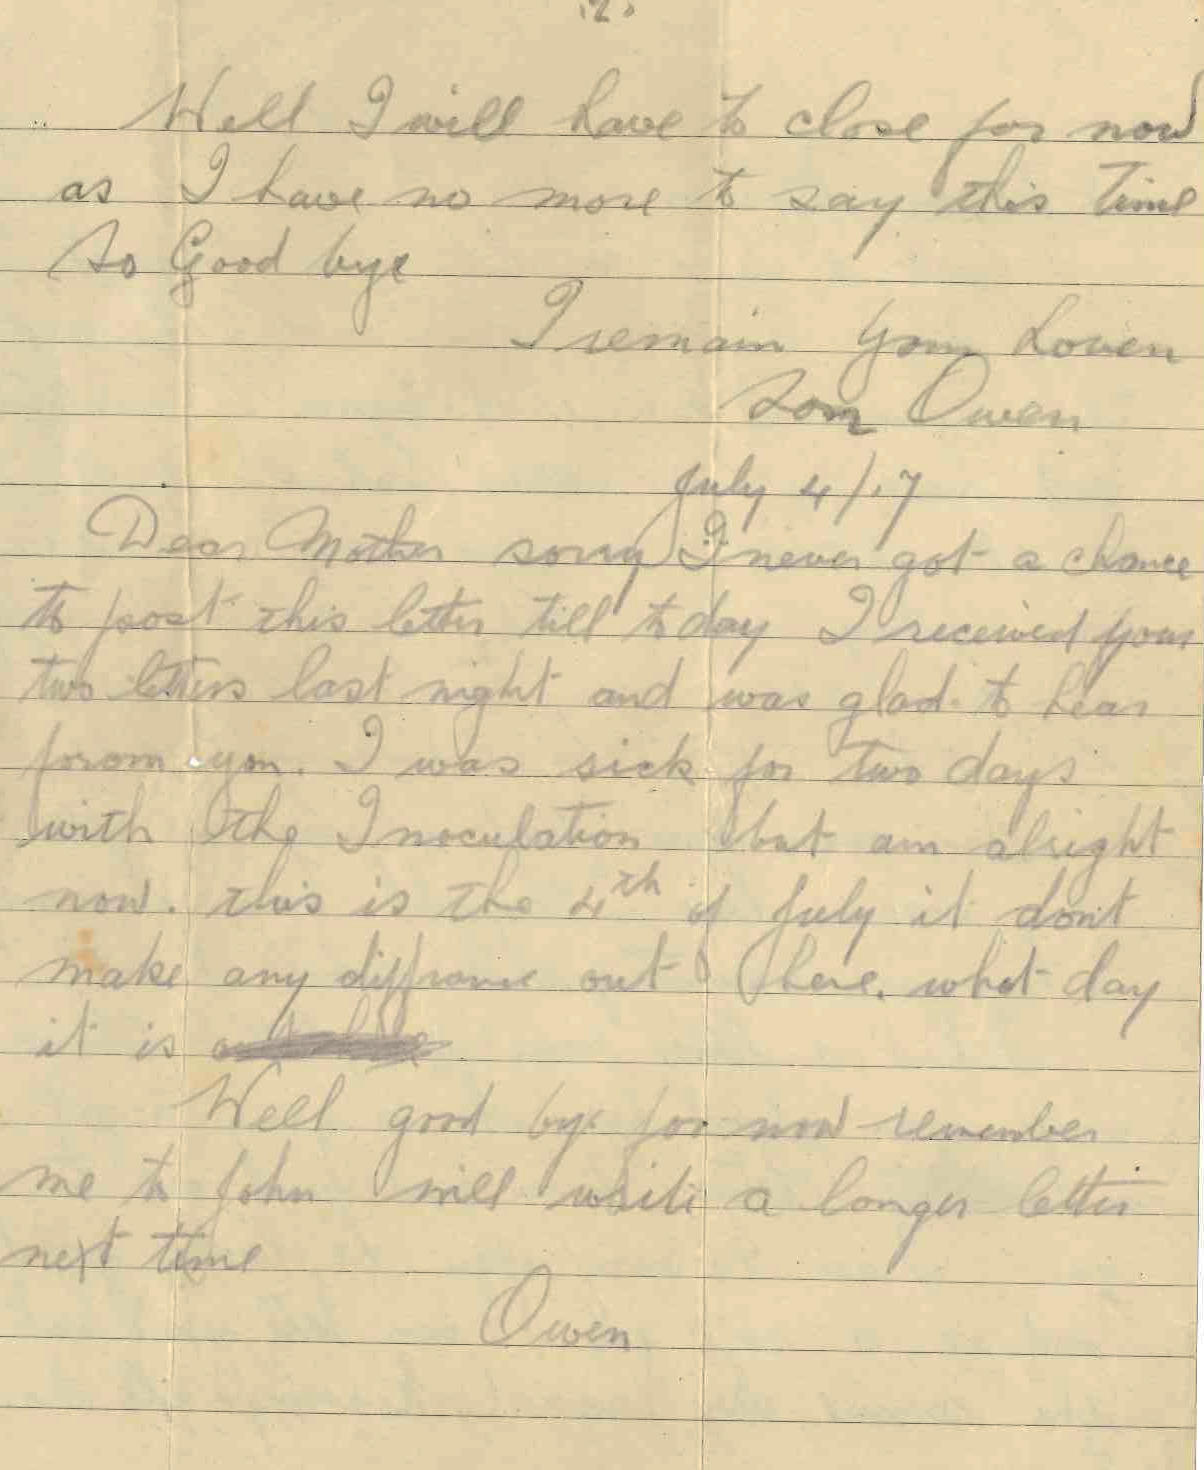 .2.
Well I will have to close for now
as I have no more to say this time
so Good bye
I remain your Loven
Son Owen
July 4/17
Dear Mother sorry I never got a chance
to post this letter till to day I received your
two letters last night and was glad to hear
forom you. I was sick for two days
with the Inoculation but am alright
now. this is the 4th of July it dont
make any diffrance out here. what day
it is
Well good bye for now remember
me to John will write a longer letter
next time
Owen